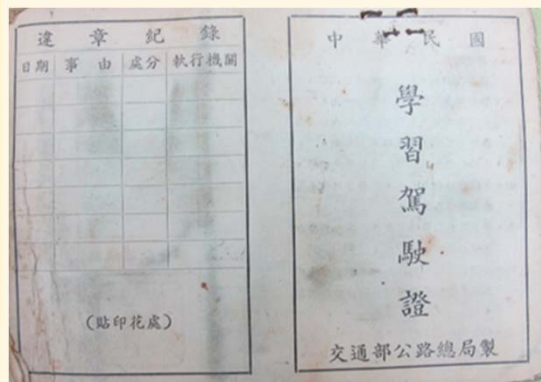 違章紀錄
日期 事由 處分 執行機關
(貼印花處)
中華民國
學習駕駛證
交通部公路總局製